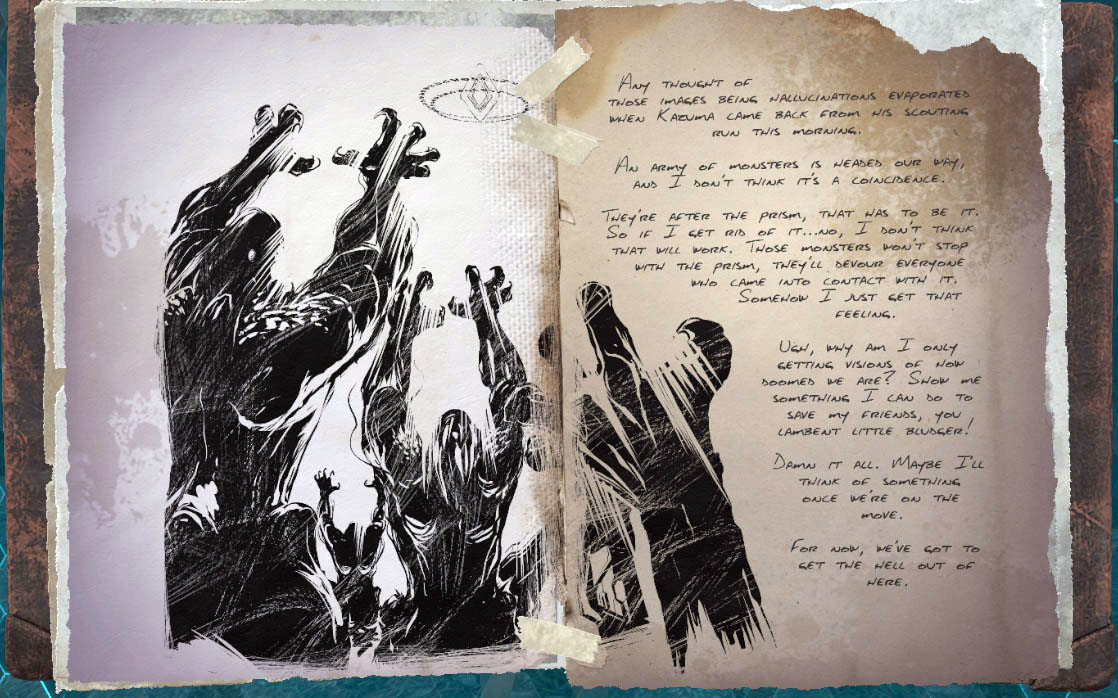 Any thought of
those images being hallucinations evaporated
when Kazuma came back from his scouting
run this morning.
An army of monsters is headed our way,
and I don't think it's a coincidence.
They're after the prism, that has to be it.
So if I get rid of it...no, I don't think
that will work. Those monsters won't stop
with the prism, they'll devour everyone
who came into contact with it.
Somehow I just get that
feeling.
Ugh, why am I only
getting visions of how
doomed we are? Show me
something I can do to
save my friends, you
lambent little bludger!
Damn it all. Maybe I'll
think of something
once we're on the
move.
For now, we've got to
get the hell out of
here.